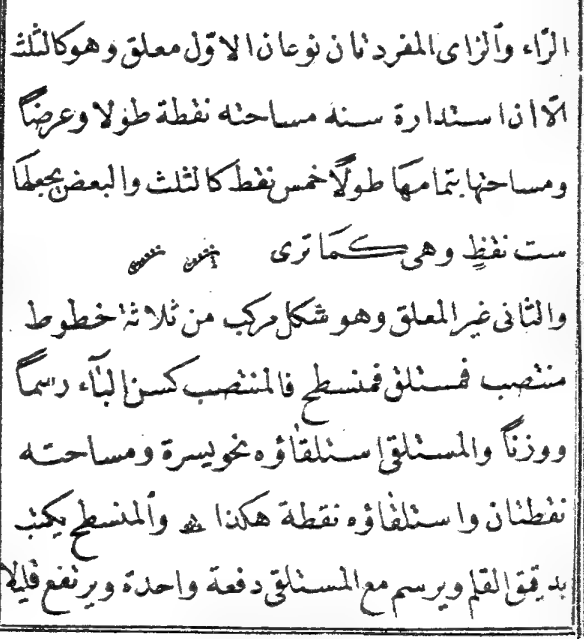 الرّاء والزاى المفرد ثان نوعان الاوّل معلق وهو كالثلث
الّا ان استدارة سنه مساحته نقطة طولا وعرضاً
ومساحتها بتمامها طولًا خمس نقط كالثلث والبعض يجعلها
ست نقظٍ وهى كما ترى
والثانى غير المعلق وهو شكل مركب من ثلاثة خطوط
منتصب فمستلق فمنسطح فالمنتصب كسن البآء رسماً
ووزناً والمستلقى استلقاؤه نحو يسرة ومساحته
نقطتان واستلقاؤه نقطة هكذا والمنسطح يكتب
بدقيق القلم ويرسم مع المستلقى دفعة واحدة ويرتفع قليلا